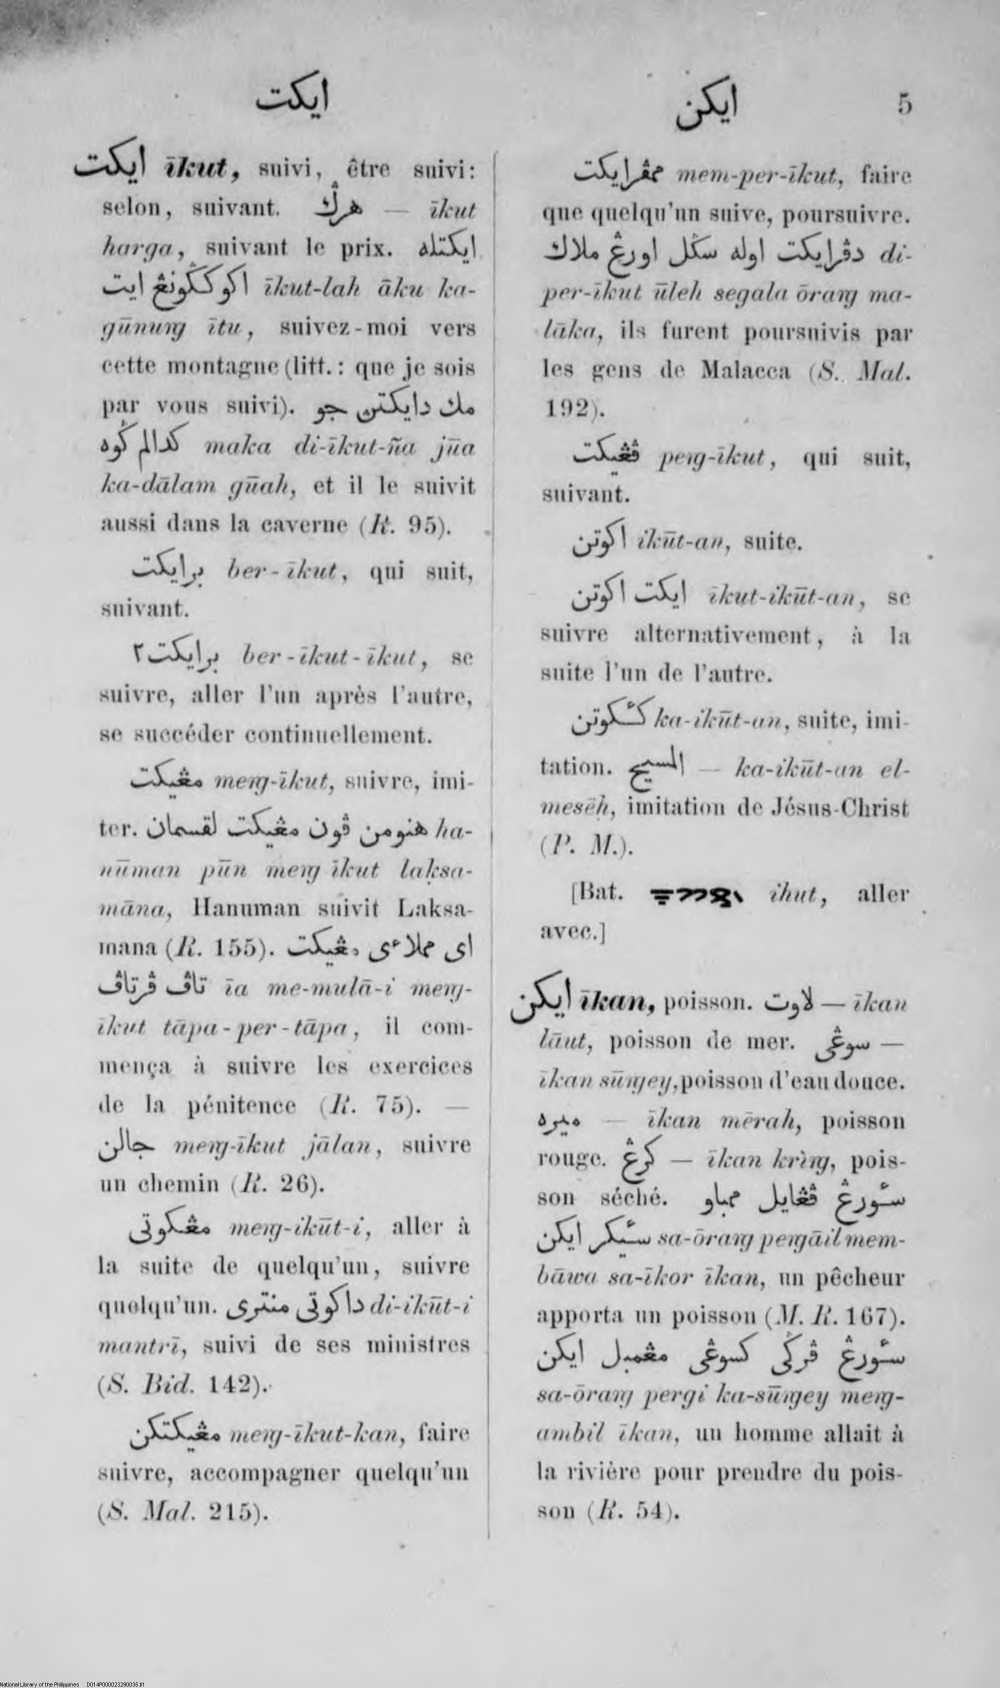 ايكت
ايكن 5
ايكت īkut, suivi, être suivi:
selon, suivant. هرݢ — īkut
harga, suivant le prix. ايكتله
اكو كڬونڠ ايت īkut-lah āku ka-
gūnung ītu, suivez-moi vers
cette montagne (litt.: que je sois
par vous suivi). مك دايكتن جو
كدالم ڬوه maka di-īkut-ña jūa
ka-dālam gūah, et il le suivit
aussi dans la caverne (R. 95).
برايكت ber-īkut, qui suit,
suivant.
برايكت٢ ber-īkut-īkut, se
suivre, aller l'un après l'autre,
se succéder continuellement.
مڠيكت meng-īkut, suivre, imi-
ter. هنومن ڤون مڠيكت لقسمان ha-
nūman pūn meng īkut laḳsa-
māna, Hanuman suivit Laksa-
mana (R. 155). اى مملاءى مڠيكت
تاڤ ڤرتاڤ īa me-mulā-i meng-
īkut tāpa-per-tāpa, il com-
mença à suivre les exercices
de la pénitence (R. 75). —
جالن meng-īkut jālan, suivre
un chemin (R. 26).
مڠكوتى meng-ikūt-i, aller à
la suite de quelqu'un, suivre
quelqu'un. داكوتى منترى di-ikūt-i
mantrī, suivi de ses ministres
(S. Bid. 142).
مڠيكتكن meng-īkut-kan, faire
suivre, accompagner quelqu'un
(S. Mal. 215).
ممڤرايكت mem-per-īkut, faire
que quelqu'un suive, poursuivre.
دڤرايكت اوله سڬل اورڠ ملاك di-
per-īkut ūleh segala ōrang ma-
lāka, ils furent poursuivis par
les gens de Malacca (S. Mal.
192).
ڤڠيكت peng-īkut, qui suit,
suivant.
اكوتن ikūt-an, suite.
ايكت اكوتن īkut-ikūt-an, se
suivre alternativement, à la
suite l'un de l'autre.
كئكوتن ka-ikūt-an, suite, imi-
tation. المسيح — ka-ikūt-an el-
mesēḥ, imitation de Jésus-Christ
(P. M.).
[Bat. ihut, aller
avec.]
ايكن īkan, poisson. لاوت — īkan
lāut, poisson de mer. سوڠى —
īkan sūngey, poisson d'eau douce.
ميره — īkan mērah, poisson
rouge. كرڠ — īkan krìng, pois-
son séché. سئورڠ ڤڠايل ممباو
سئيكر ايكن sa-ōrang pengāil mem-
bāwa sa-īkor īkan, un pêcheur
apporta un poisson (M. R. 167).
سئورڠ ڤرڬى كسوڠى مڠمبل ايكن
sa-ōrang pergi ka-sūngey meng-
ambil īkan, un homme allait à
la rivière pour prendre du pois-
son (R. 54).
National Library of the Philippines D014P000023290036.tif